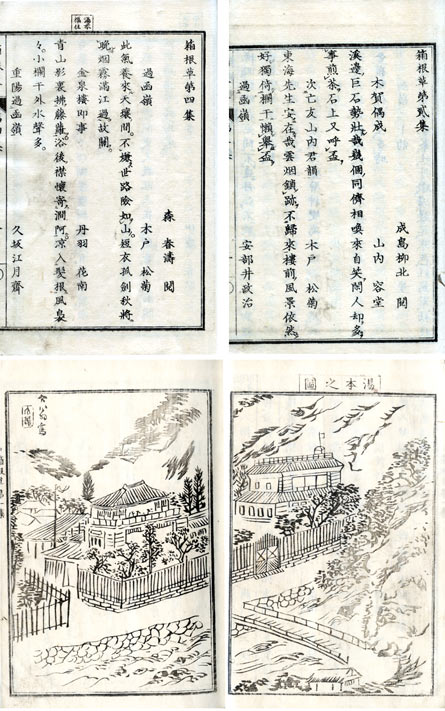 箱根草第貳集
成島柳北 閲
木賀偶成 山内容堂
溪邊巨石勢壯哉幾個同儕相喚來自笑閑人却多
事煎茶石上又呼盃
次亡友山内君韻 木戸松菊
東海先生安在哉雲烟鎖跡不歸來樓前風景依然
好獨倚欄干懶擧盃
過函嶺 安部井政治
箱根草第四集
森春濤 閲
過函嶺 木戸松菊
此氣養來天壤間不嫌世路險如山短衣孤劍秋將
晩烟霧滿江過故關
金泉樓即事 丹羽花南
青山影裏拂藤蘿浴後襟懷寄澗阿凉入髪根風裊
々小欄干外水聲多
重陽過函嶺 久坂江月齋
湯本之圖